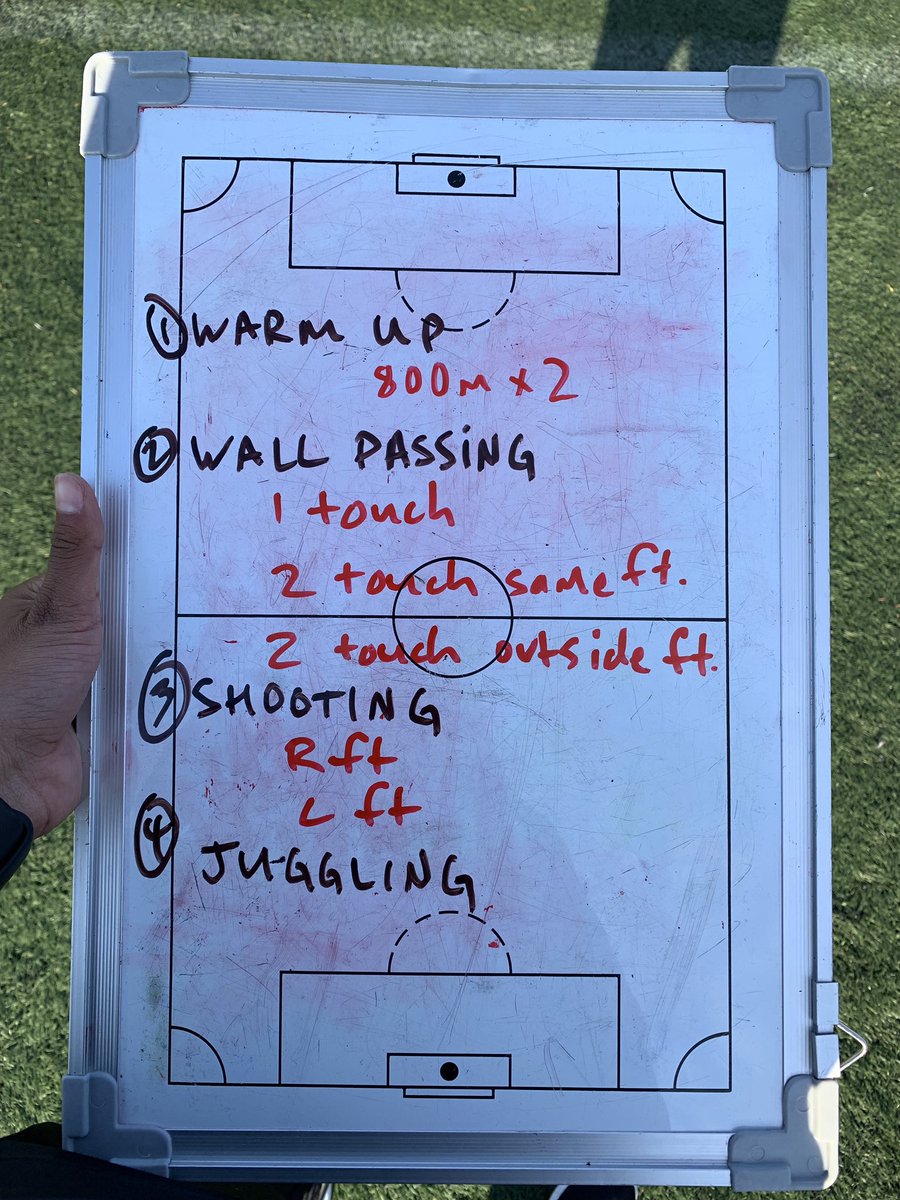 ① WARM UP
800m x 2
② WALL PASSING
1 touch
2 touch same ft.
2 touch outside ft.
③ SHOOTING
R ft
L ft
④ JUGGLING